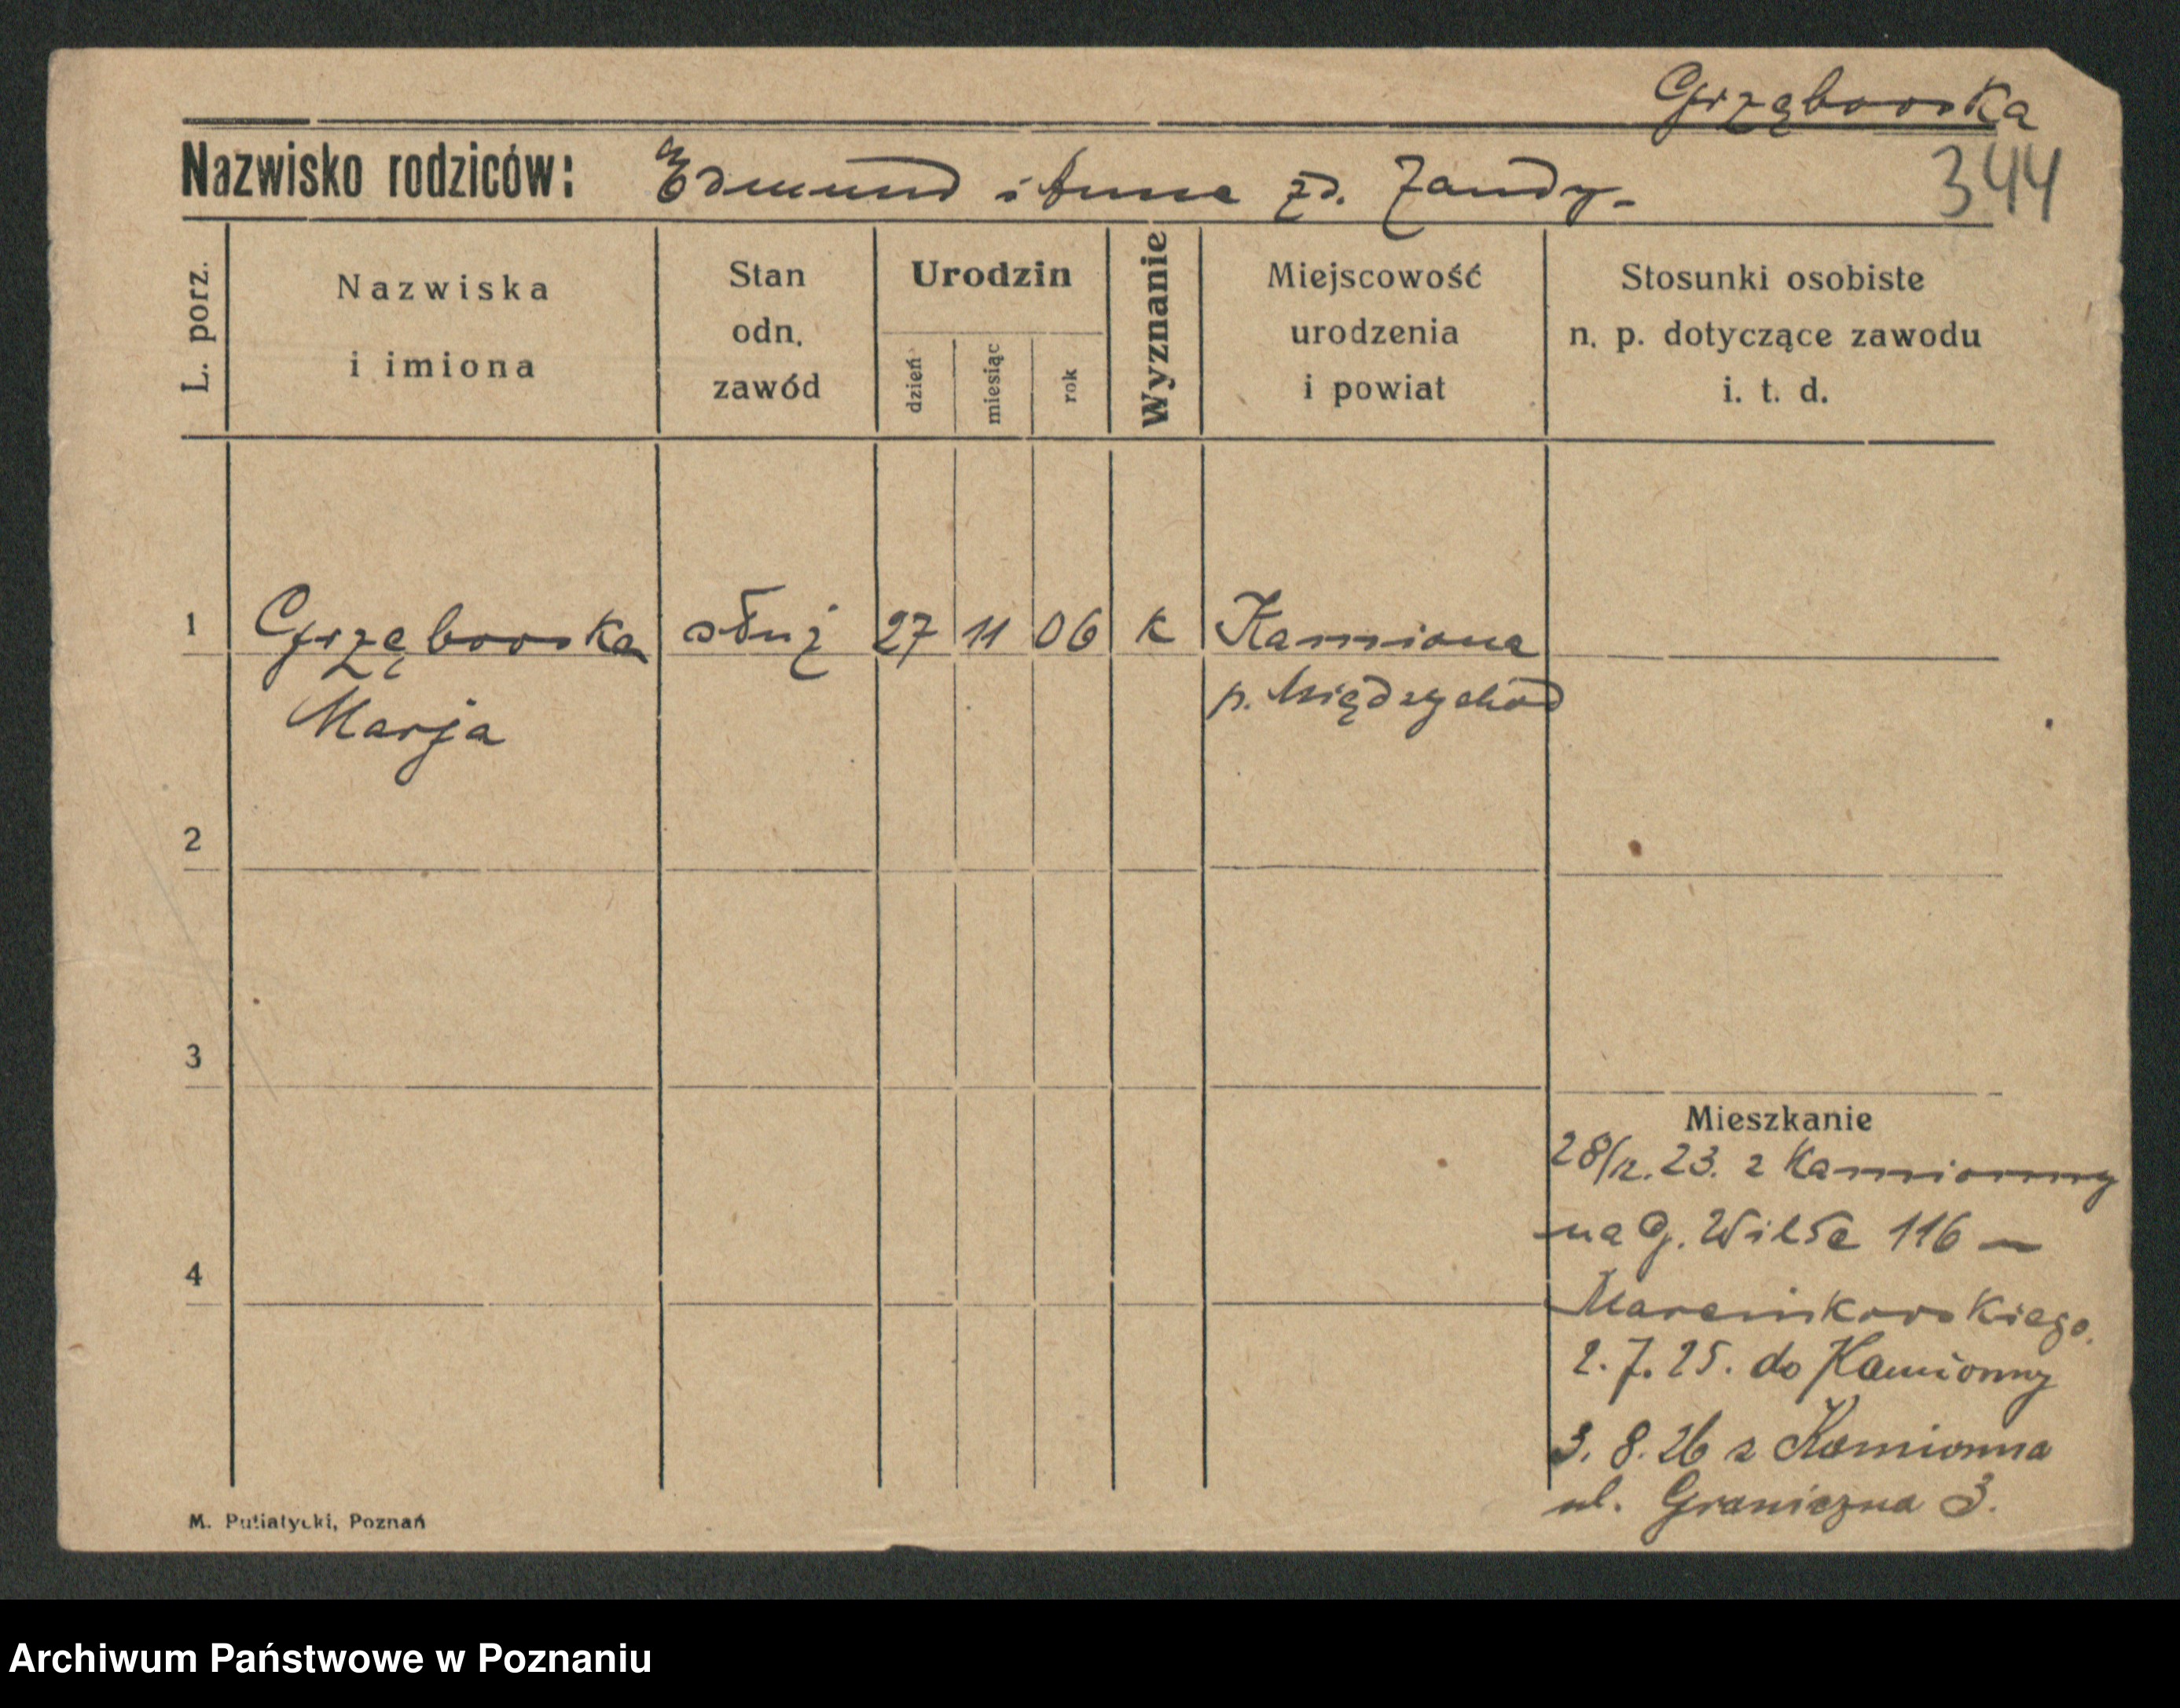 Grzębowska
Nazwisko rodziców: Edmund i Anna zd. Zandy-
344
L. porz.
Nazwiska
i imiona
Stan
odn.
zawód
Urodzin
dzień
miesiąc
rok
Wyznanie
Miejscowość
urodzenia
i powiat
Stosunki osobiste
n. p. dotyczące zawodu
i. t. d.
1 Grzębowska służ 27 11 06 k Kamiona
Marja p. Międzychód
2
3
Mieszkanie
28/12. 23. z Kamionny
na G. Wilda 116 —
4
Marcinkowskiego.
2. 7. 25. do Kamionny
3. 8. 26 z Kamionna
ul. Graniczna 3.
M. Putiatycki, Poznań
Archiwum Państwowe w Poznaniu